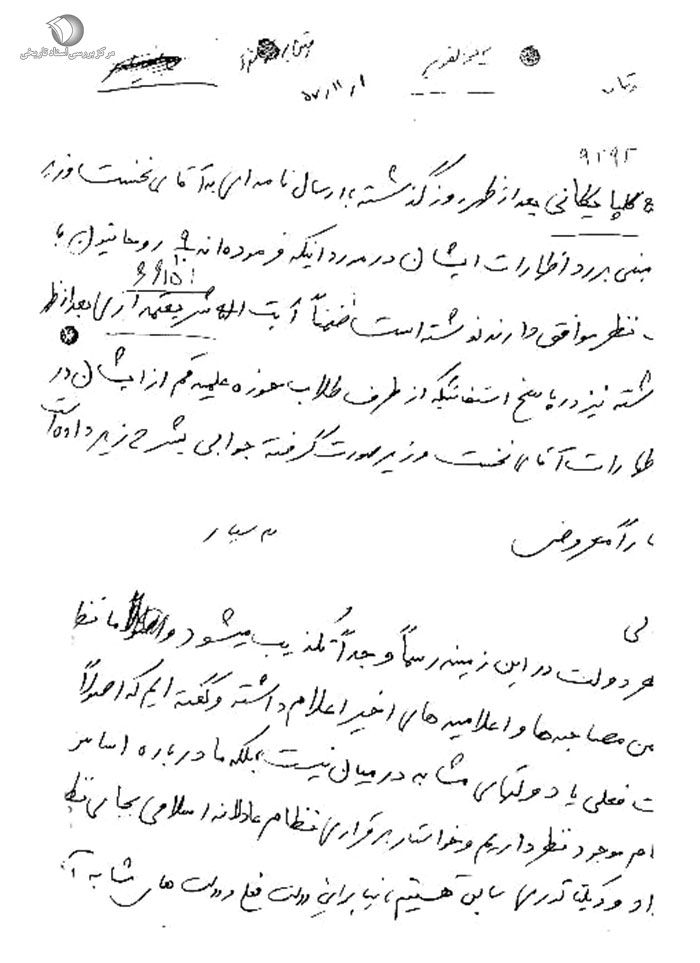 مرکز بررسی اسناد تاریخی
۵۷/۱۱/۱
۹۲۹۲
گلپایگانی بعد از ظهر روز گذشته با ارسال نامه ای به آقای نخست وزیر
مبنی بر رد اظهارات ایشان در مورد اینکه فرموده اند روحانیون با
نظر موافق دارند نوشته است ضمناً آیت اله شریعتمداری بعد از ظ
شته نیز در پاسخ استفتائیکه از طرف طلاب حوزه علمیه قم از ایشان در
ظهارات آقای نخست وزیر صورت گرفته جوابی بشرح زیر داده است
معروض
لی
هر دولت در این زمینه رسماً و جداً تکذیب میشود و ما نظ
من مصاحبه ها و اعلامیه های اخیر اعلام داشته و گفته ایم که اصولاً
ت فعلی یا دولتهای مشابه در میان نیست بلکه ما درباره اساس
ام موجود نظر داریم و خواستار برقراری نظام عادلانه اسلامی بجای نظ
اد و دیکتاتوری سابق هستیم بنابراین دولت فعلی و دولت های مشابه آ